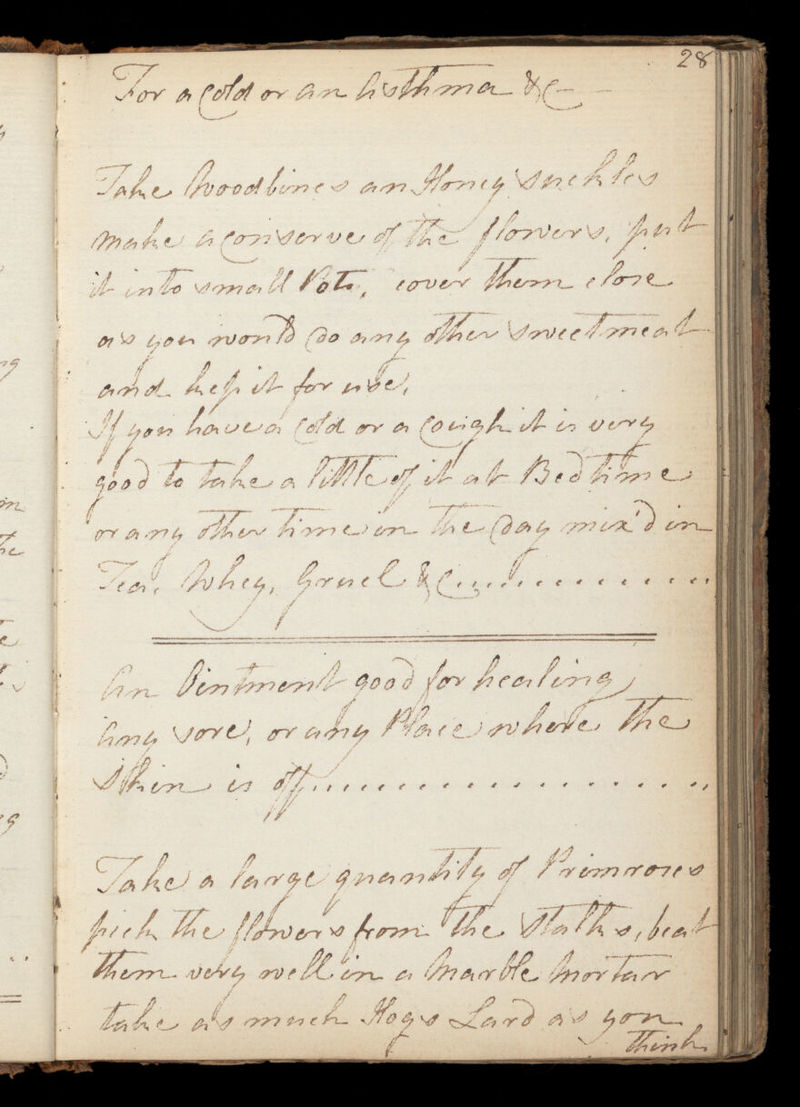 28
For a Cold or an Asthma &c
Take Woodbines an Honey Suckles
make a Conserve of the flowers, put
it into small Pots, cover them close
as you would do any other Sweetmeat
and kep it for use,
If you have a Cold or a Cough it is very
good to take a little of it at Bedtime
or any other time in the Day mix'd in
Tea, Whey, Gruel &c..............
An Ointment good for healing
any sore, or any Place where the
Skin is off......................
Take a large quantity of Primroses
pick the flowers from the Stalks, beat
them very well in a Marble Mortar
take as much Hogs Lard as you
think